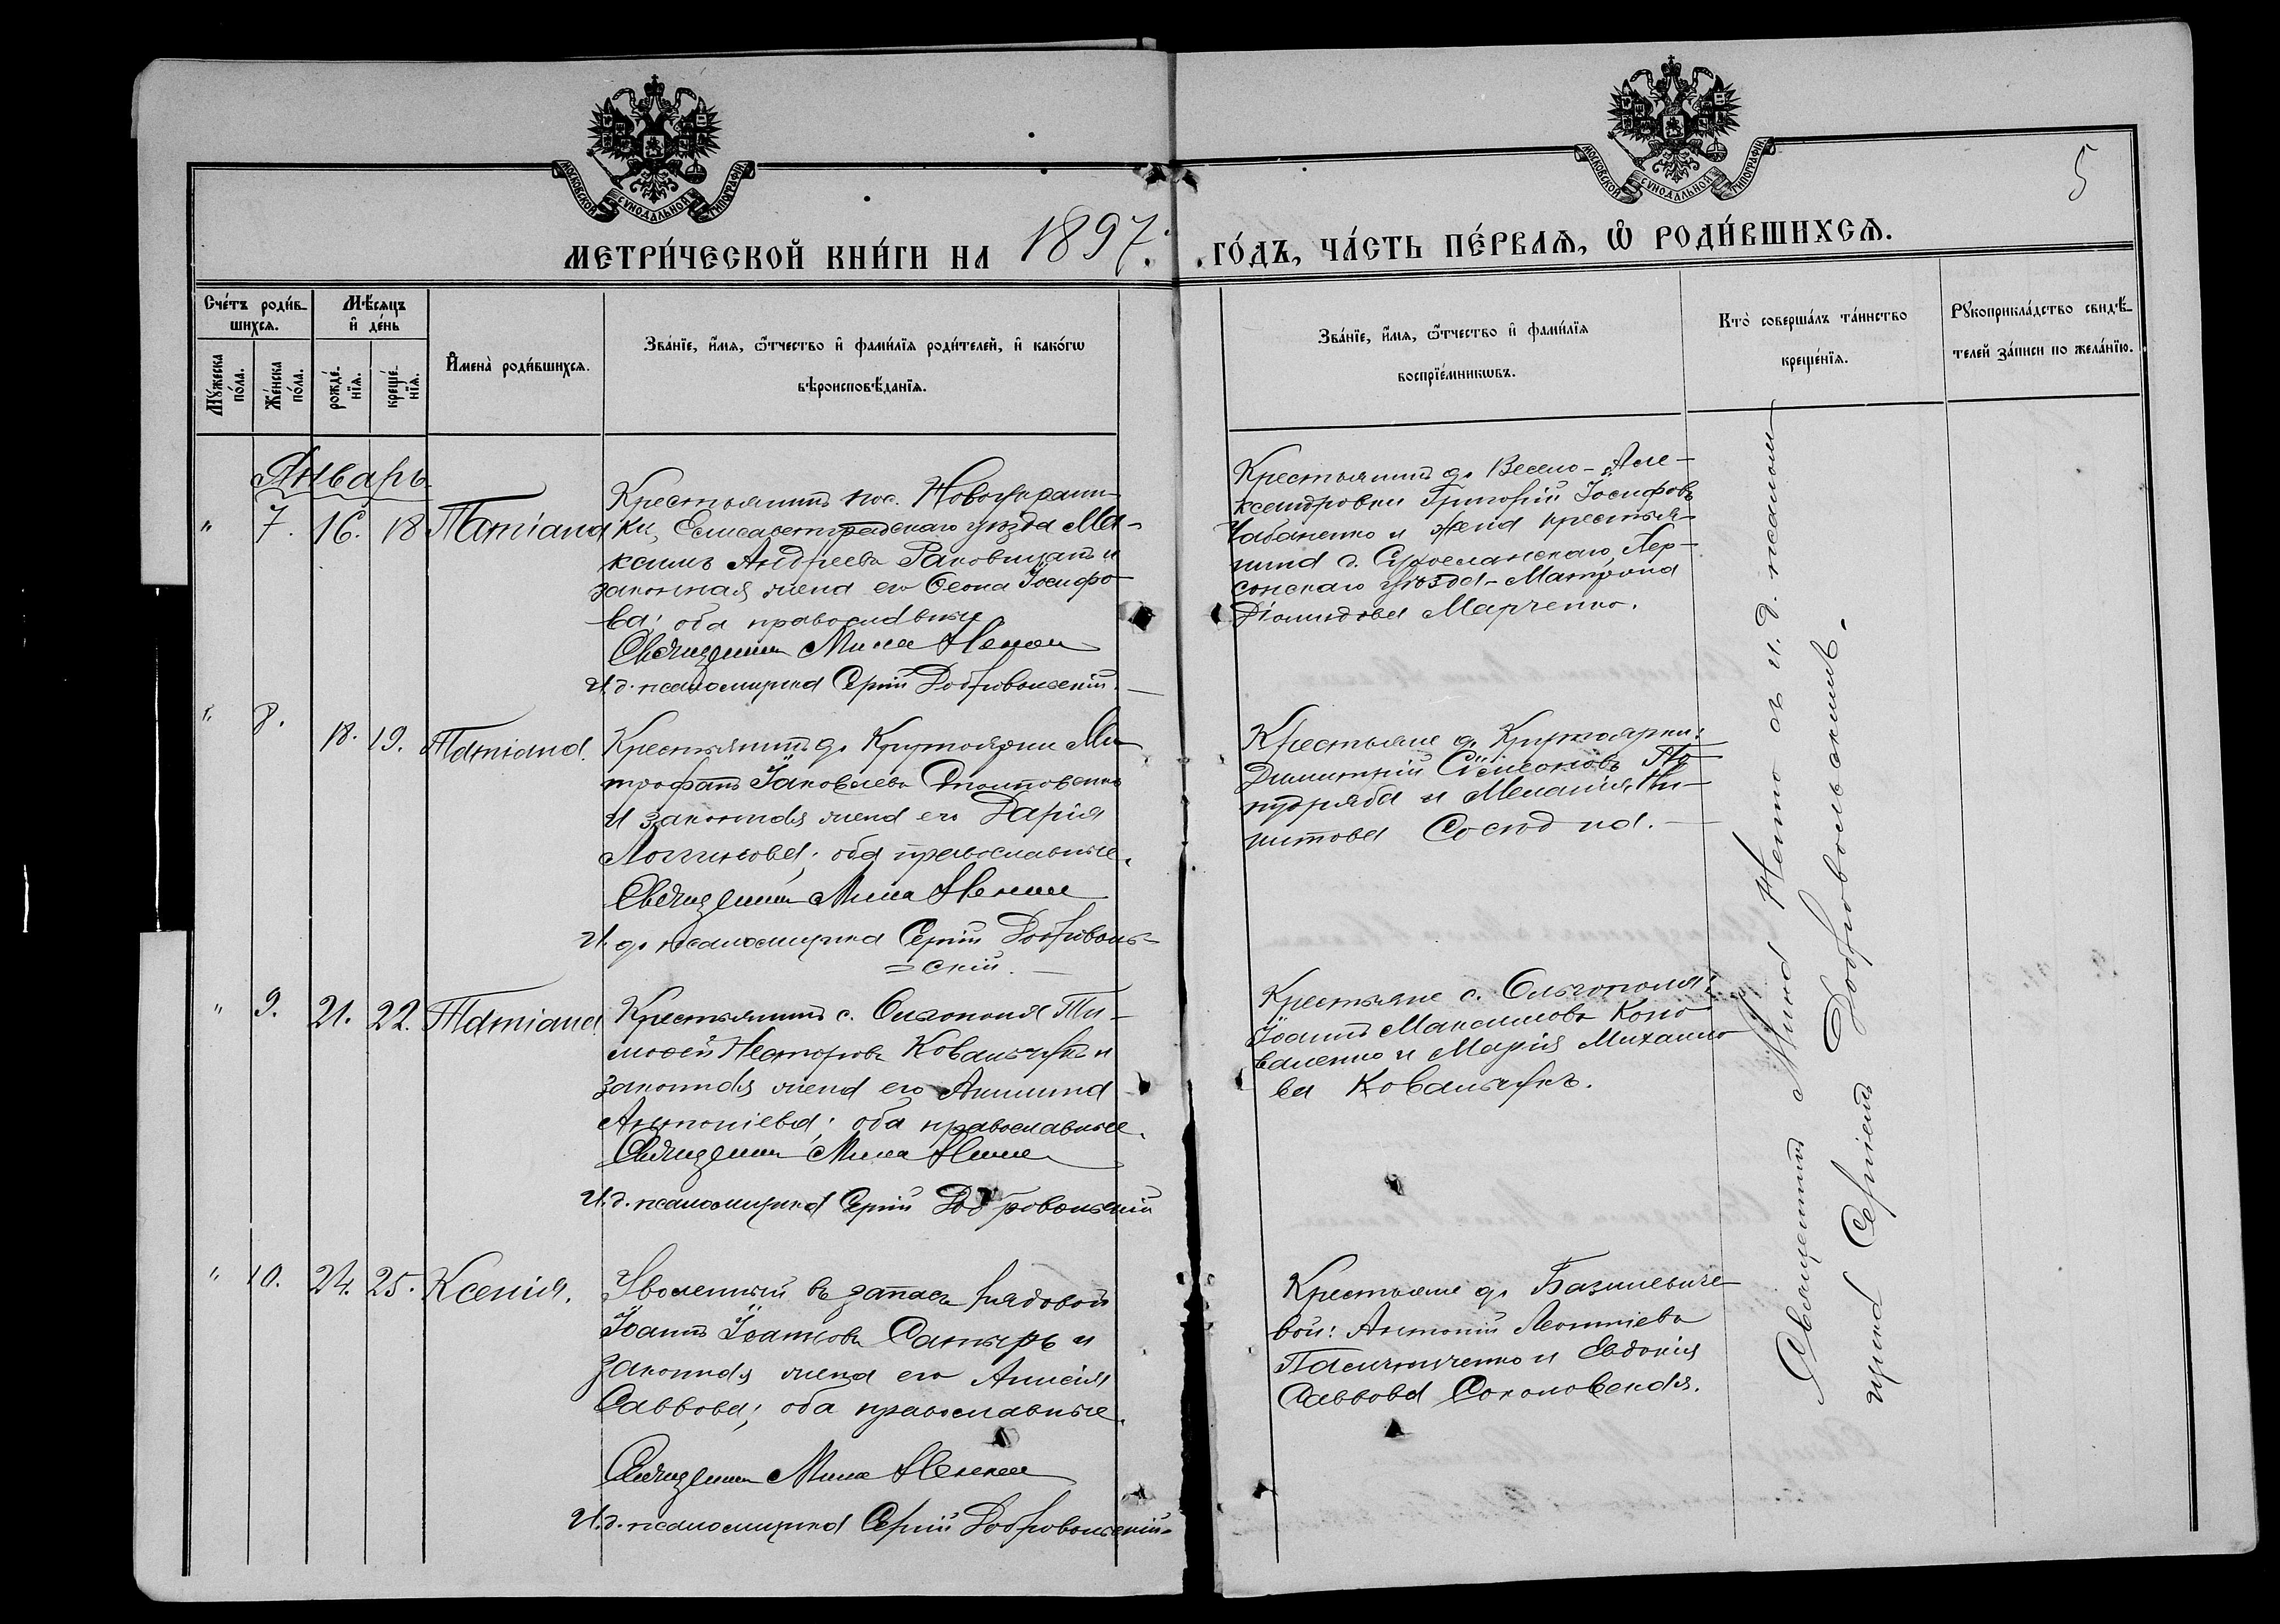 МОСКОВСКОЙ СѴНОДАЛЬНОЙ ТИПОГРАФІИ
МОСКОВСКОЙ СѴНОДАЛЬНОЙ ТИПОГРАФІИ
5
МЕТРИ́ЧЕСКОЙ КНИ́ГИ НА 1897. ГО́ДЪ, ЧА́СТЬ ПЕ́РВАѦ, Ѡ҆ РОДИ́ВШИХСѦ.
Сче́тъ роди́в-
шихсѧ.
Мꙋ́жеска
по́ла.
Же́нска
по́ла.
Мѣ́сѧцъ
и҆ де́нь
рожде́-
нїѧ.
креще́-
нїѧ.
И҆мена̀ роди́вшихсѧ.
Зва́нїе, и҆́мѧ, ѻ҆́тчество и҆ фами́лїѧ роди́телей, и҆ како́гѡ
вѣроисповѣ́данїѧ.
Зва́нїе, и҆́мѧ, ѻ҆́тчество и҆ фами́лїѧ
воспрїе́мникѡвъ.
Кто̀ соверша́лъ та́инство
креще́нїѧ.
Рꙋкоприкла́дство свидѣ́-
телей за́писи по жела́нїю.
Январь
" 7. 16. 18 Татіана
Крестьянинъ пос. Новоукраин-
ки, Елисаветградскаго уѣзда Ма-
ксимъ Андреевъ Раковицанъ и
законная жена его Ѳеона Іосифо-
ва; оба православные
Священникъ Мина
И.д. псаломщика Сергій Добровольскій.
Крестьянинъ д. Весело-Але-
ксандровки Григорій Іосифовъ
Чабаненко и жена крестья-
нина д. Хер-
сонскаго уѣзда - Матрона
Діомидова Марченко.
" 8. 18. 19. Татіана.
Крестьянинъ д. Крутоярки Ми-
трофанъ Іаковлевъ
и законная жена его Дарія
Логгинова; оба православные.
Священникъ Мина
И. д. псаломщика Сергій Доброволь-
=скій.
Крестьяне д. Крутоярки:
Димитрій Симеоновъ По-
пудряба и Меланія Ни-
китова
" 9. 21. 22. Татіана
Крестьянинъ с. Ольгополя Ти-
моѳей Несторовъ Ковальчукъ и
законная жена его Акилина
Антоніева; оба православные.
Священникъ Мина
И.д. псаломщика Сергій Добровольскій
Крестьяне с. Ольгополя:
Іоаннъ Максимовъ Коно-
валенко и Марія Михаило-
ва Ковальчукъ.
" 10. 24. 25. Ксенія.
Уволенный въ запасъ рядовой
Іоаннъ Іоанновъ Сатыръ и
законная жена его Анисія
Саввова; оба православные.
Священникъ Мина
И.д. псаломщика Сергій Добровольскій.
Крестьяне д. Базилевиче-
вой: Антоній Леонтіевъ
Пасичниченко и Евдокія
Саввова Соколовская.
Священникъ Мина Ненно съ и. д. псалом-
щика Сергіемъ Добровольскимъ.